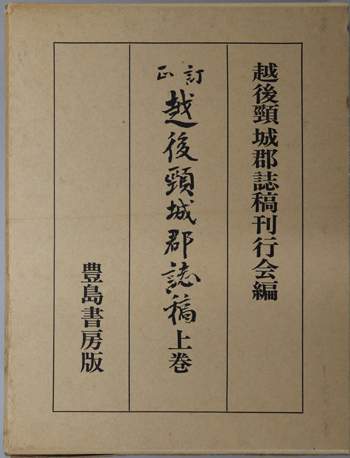 越後頸城郡誌稿刊行会編
訂正
越後頸城郡誌稿上巻
豊島書房版